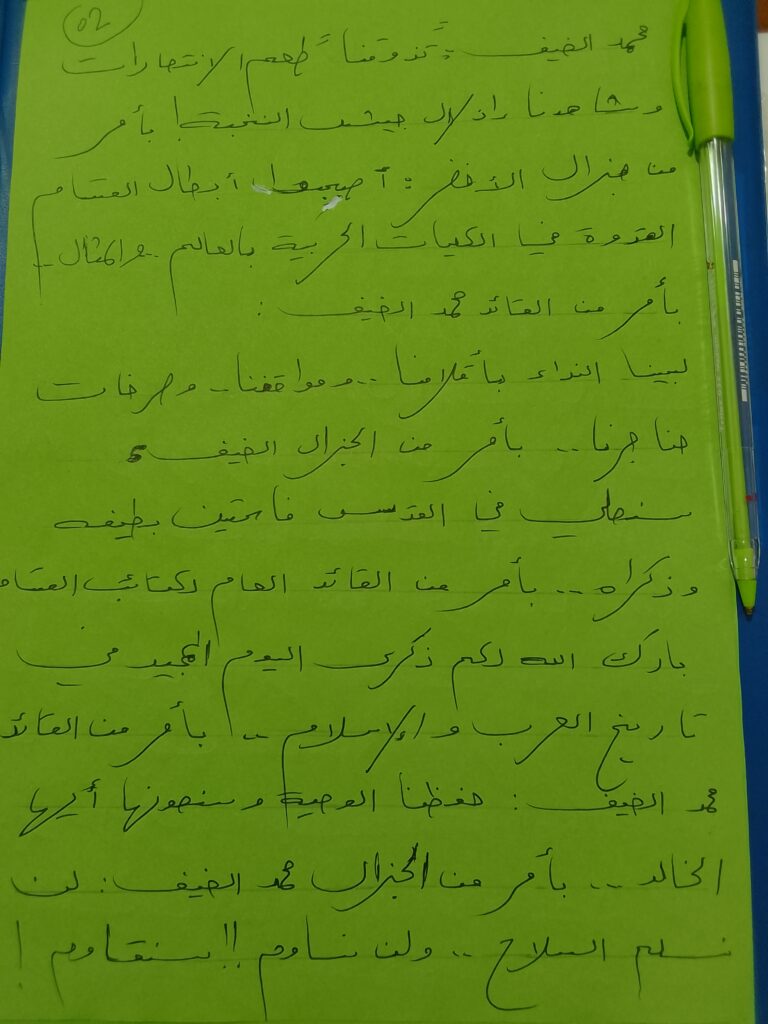 02
محمد الضيف : "تذوقنا" طعم الانتصارات
وشاهدنا إذلال جيش النخبة! بأمر
من جنرال الأخضر : أصبحوا أبطال القسام
القدوة في الكليات الحربية بالعالم .. والمثال ..
بأمر من القائد محمد الضيف :
لبينا النداء بأقلامنا .. ومواقفنا .. وصرخات
حناجرنا .. بأمر من الجنرال الضيف
سنصلي في القدس فاتحين بطيفه
وذكراه .. بأمر من القائد العام لكتائب القسام
بارك الله لكم ذكرى اليوم المجيد في
تاريخ العرب والإسلام .. بأمر من القائد
محمد الضيف : حفظنا الوصية وسنصونها أيها
الخالد ... بأمر من الجنرال محمد الضيف : لن
نسلم السلاح .. ولن نساوم !! سنقاوم !